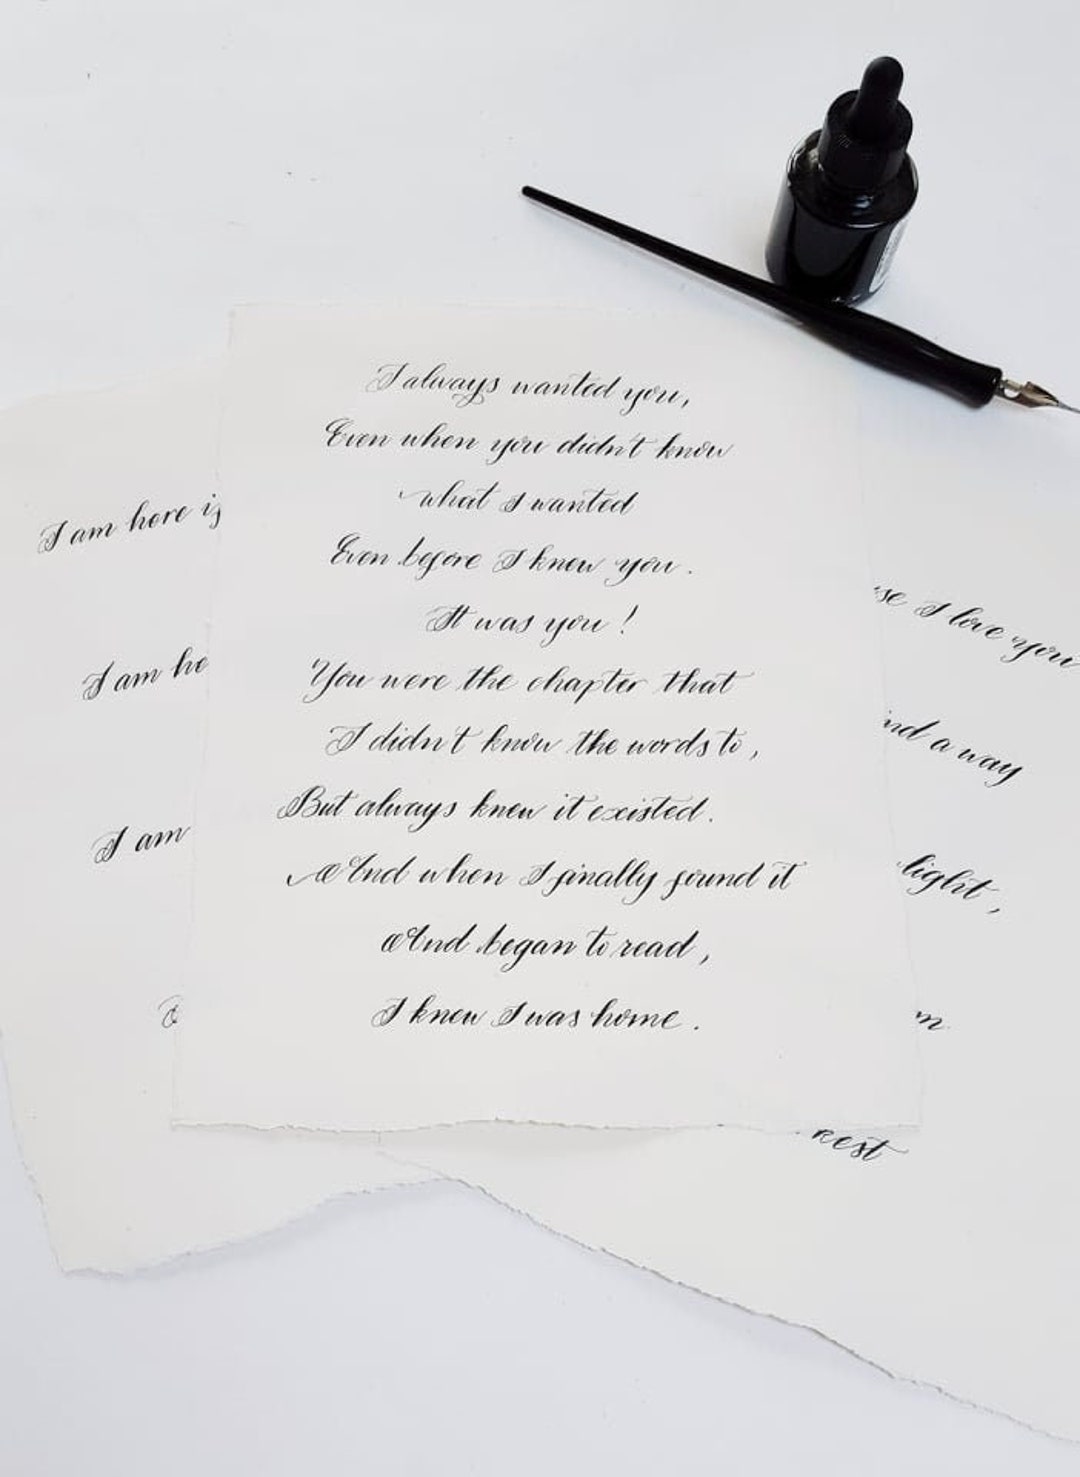 I always wanted you,
Even when you didn't know
what I wanted
Even before I knew you.
It was you!
You were the chapter that
I didn't know the words to,
But always knew it existed.
And when I finally found it
And began to read,
I knew I was home.
I am here
I am
I am
I love you
a way
light,
rest